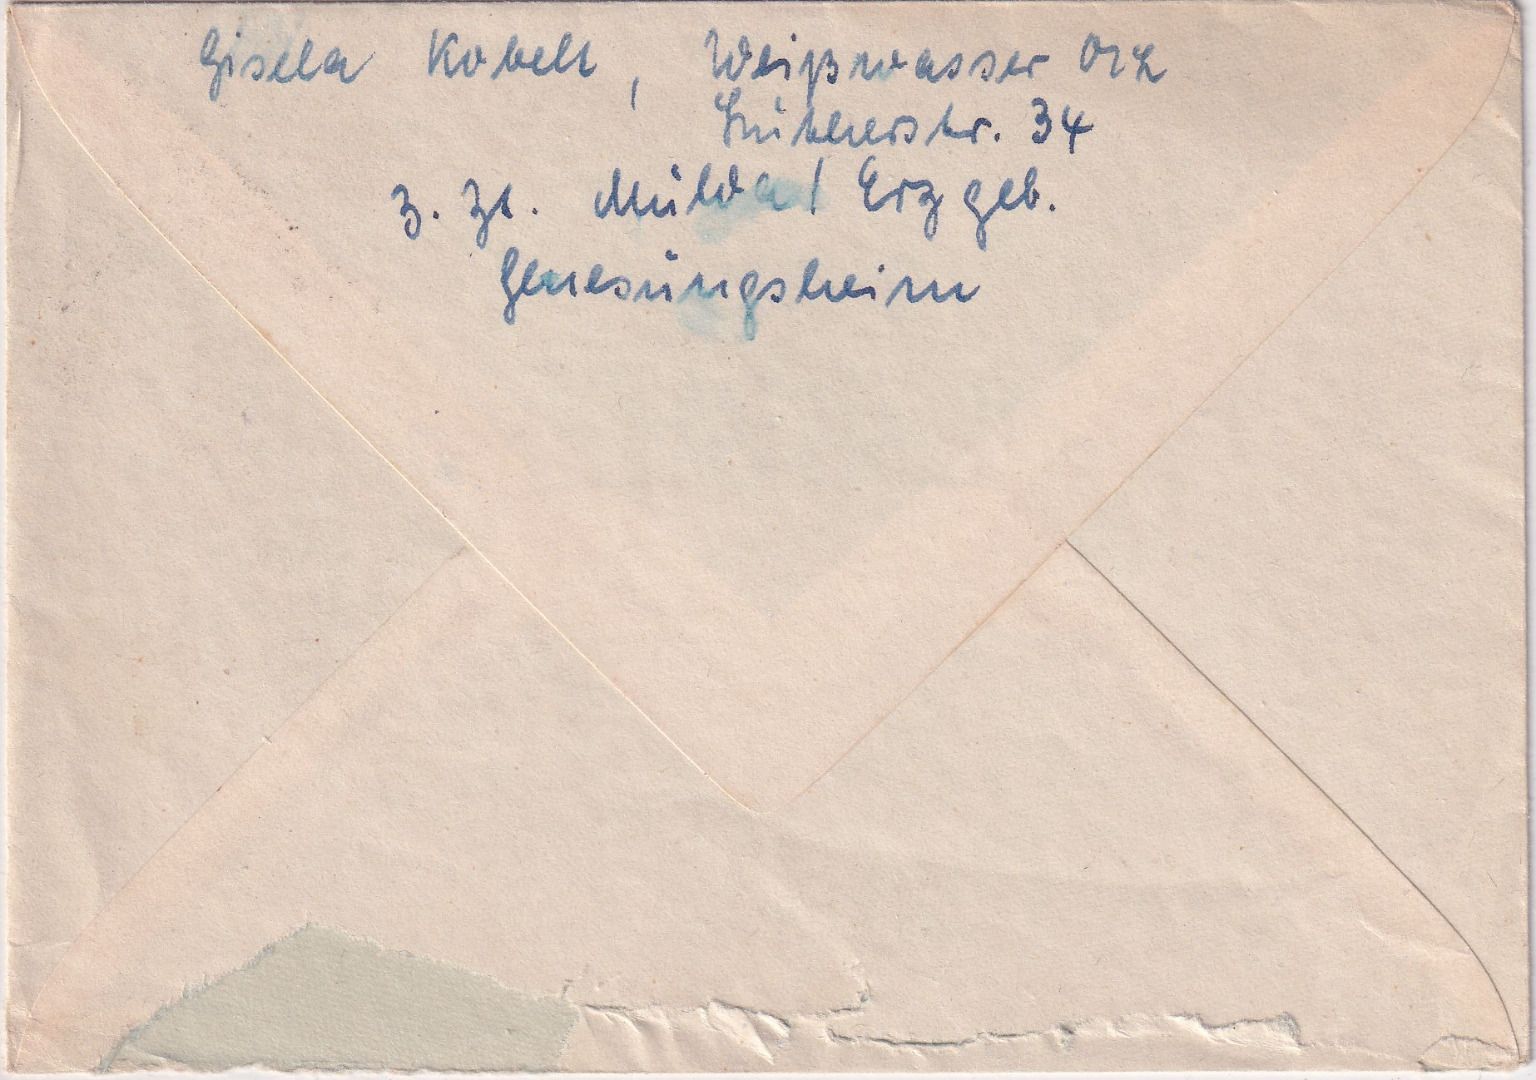 Gisela Kobelt, Weißwasser O/L
Lutherstr. 34
z. Zt. Mulda / Erzgeb.
Genesungsheim